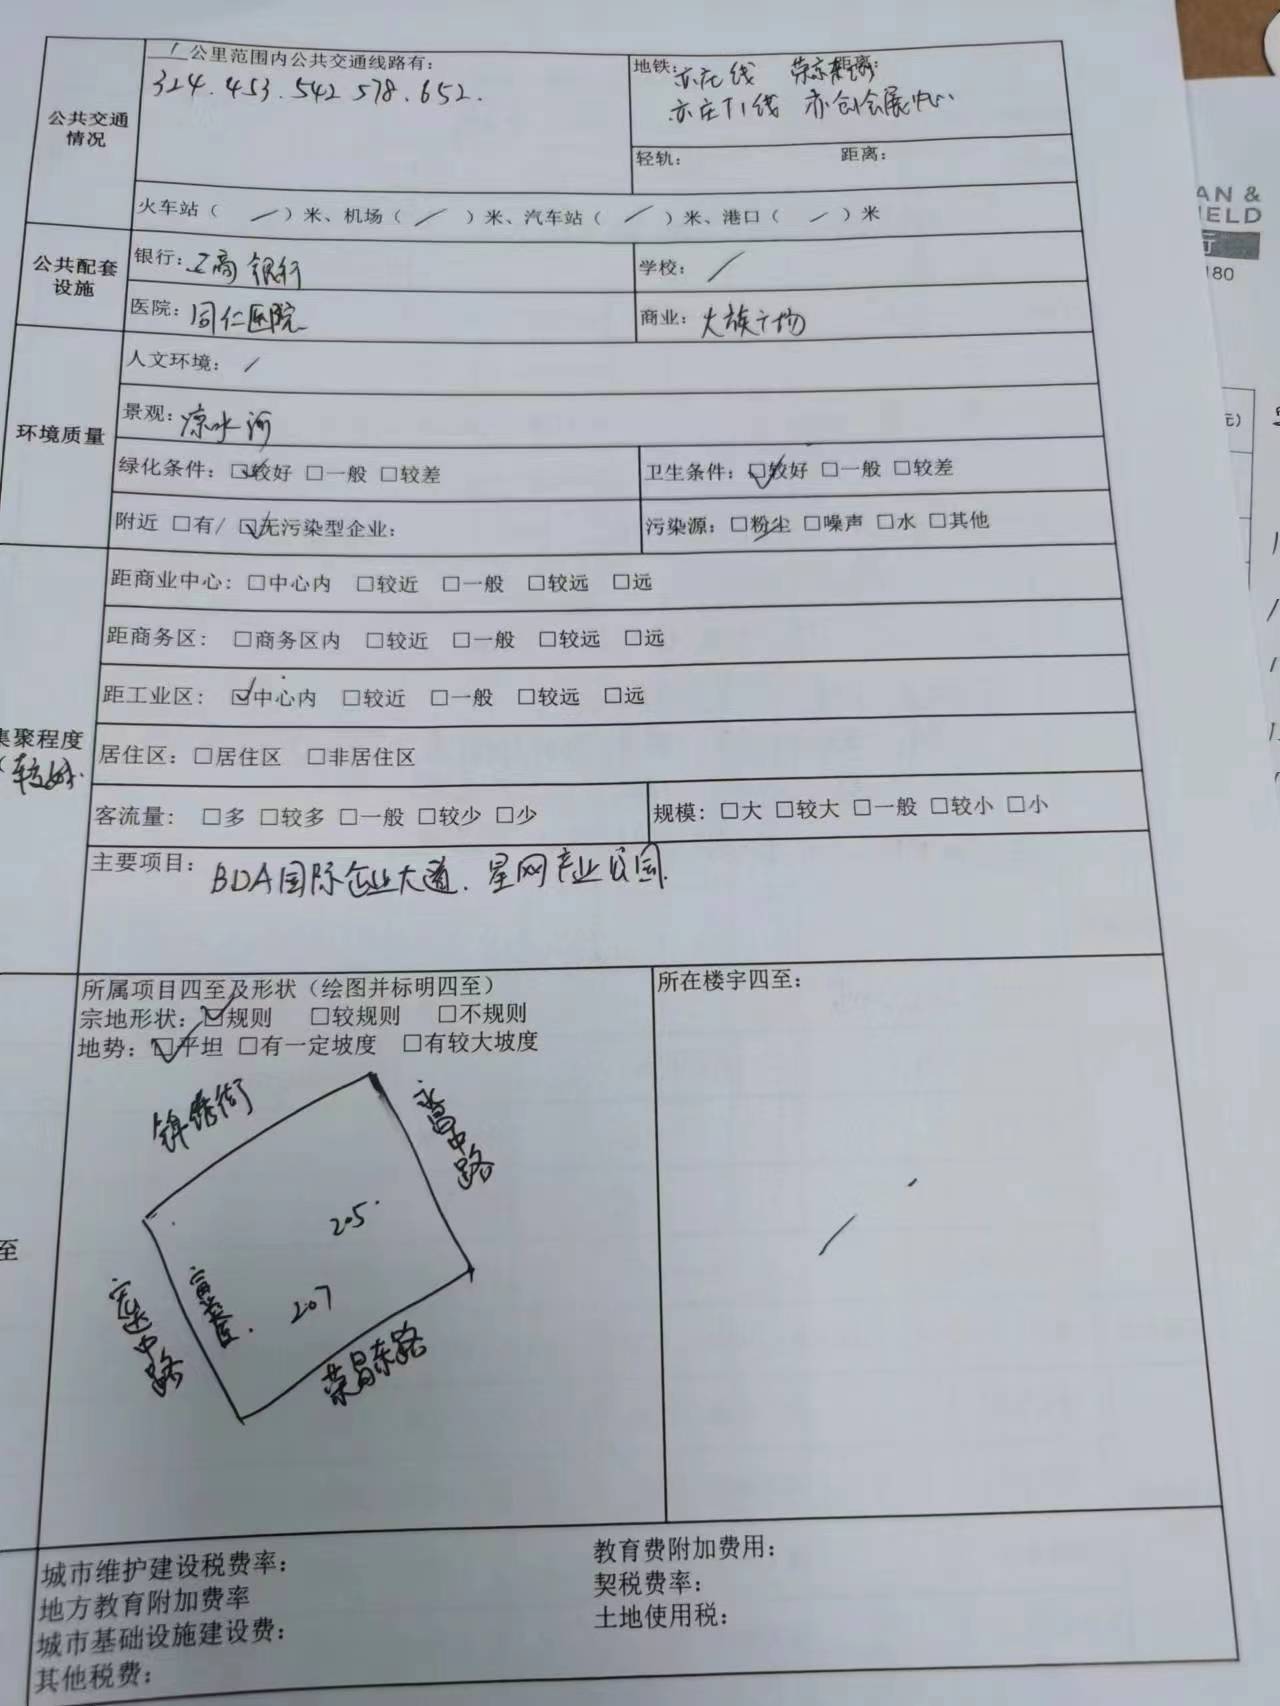 1 公里范围内公共交通线路有:
324.453.542 578.652.
地铁: 亦庄线 荣京东街 距离:
亦庄T1线 亦创会展中心
公共交通
情况
轻轨: 距离:
火车站( / )米、机场( / )米、汽车站( / )米、港口( / )米
公共配套
设施
银行: 工商银行
学校: /
医院: 同仁医院
商业: 大族广场
环境质量
人文环境: /
景观: 凉水河
绿化条件: ☑较好 □一般 □较差
卫生条件: ☑较好 □一般 □较差
附近 □有/ ☑无污染型企业:
污染源: □粉尘 □噪声 □水 □其他
集聚程度
较好
距商业中心: □中心内 □较近 □一般 □较远 □远
距商务区: □商务区内 □较近 □一般 □较远 □远
距工业区: ☑中心内 □较近 □一般 □较远 □远
居住区: □居住区 □非居住区
客流量: □多 □较多 □一般 □较少 □少
规模: □大 □较大 □一般 □较小 □小
主要项目: BDA国际企业大道. 星网产业公园.
至
所属项目四至及形状(绘图并标明四至)
宗地形状: ☑规则 □较规则 □不规则
地势: ☑平坦 □有一定坡度 □有较大坡度
锦绣街
永昌中路
205.
207
宏达中路
荣昌东路
所在楼宇四至:
/
城市维护建设税费率:
地方教育附加费率
城市基础设施建设费:
其他税费:
教育费附加费用:
契税费率:
土地使用税:
AN &
IELD
行
180
元)